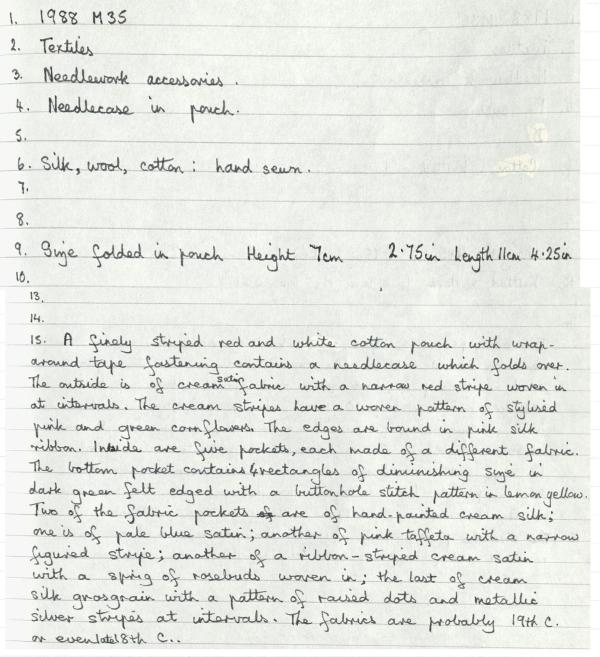 1. 1988 M35
2. Textiles
3. Needlework accessories.
4. Needlecase in pouch.
5.
6. Silk, wool, cotton: hand sewn.
7.
8.
9. Size folded in pouch Height 7cm 2.75in Length 11cm 4.25in
10.
13.
14.
15. A finely striped red and white cotton pouch with wrap-
around tape fastening contains a needlecase which folds over.
The outside is of cream satin fabric with a narrow red stripe woven in
at intervals. The cream stripes have a woven pattern of stylised
pink and green cornflowers. The edges are bound in pink silk
ribbon. Inside are five pockets, each made of a different fabric.
The bottom pocket contains 4 rectangles of diminishing size in
dark green felt edged with a buttonhole stitch pattern in lemon yellow.
Two of the fabric pockets are of hand-painted cream silk;
one is of pale blue satin; another of pink taffeta with a narrow
figured stripe; another of a ribbon-striped cream satin
with a sprig of rosebuds woven in; the last of cream
silk grosgrain with a pattern of raised dots and metallic
silver stripes at intervals. The fabrics are probably 19th C.
or even late 18th C..